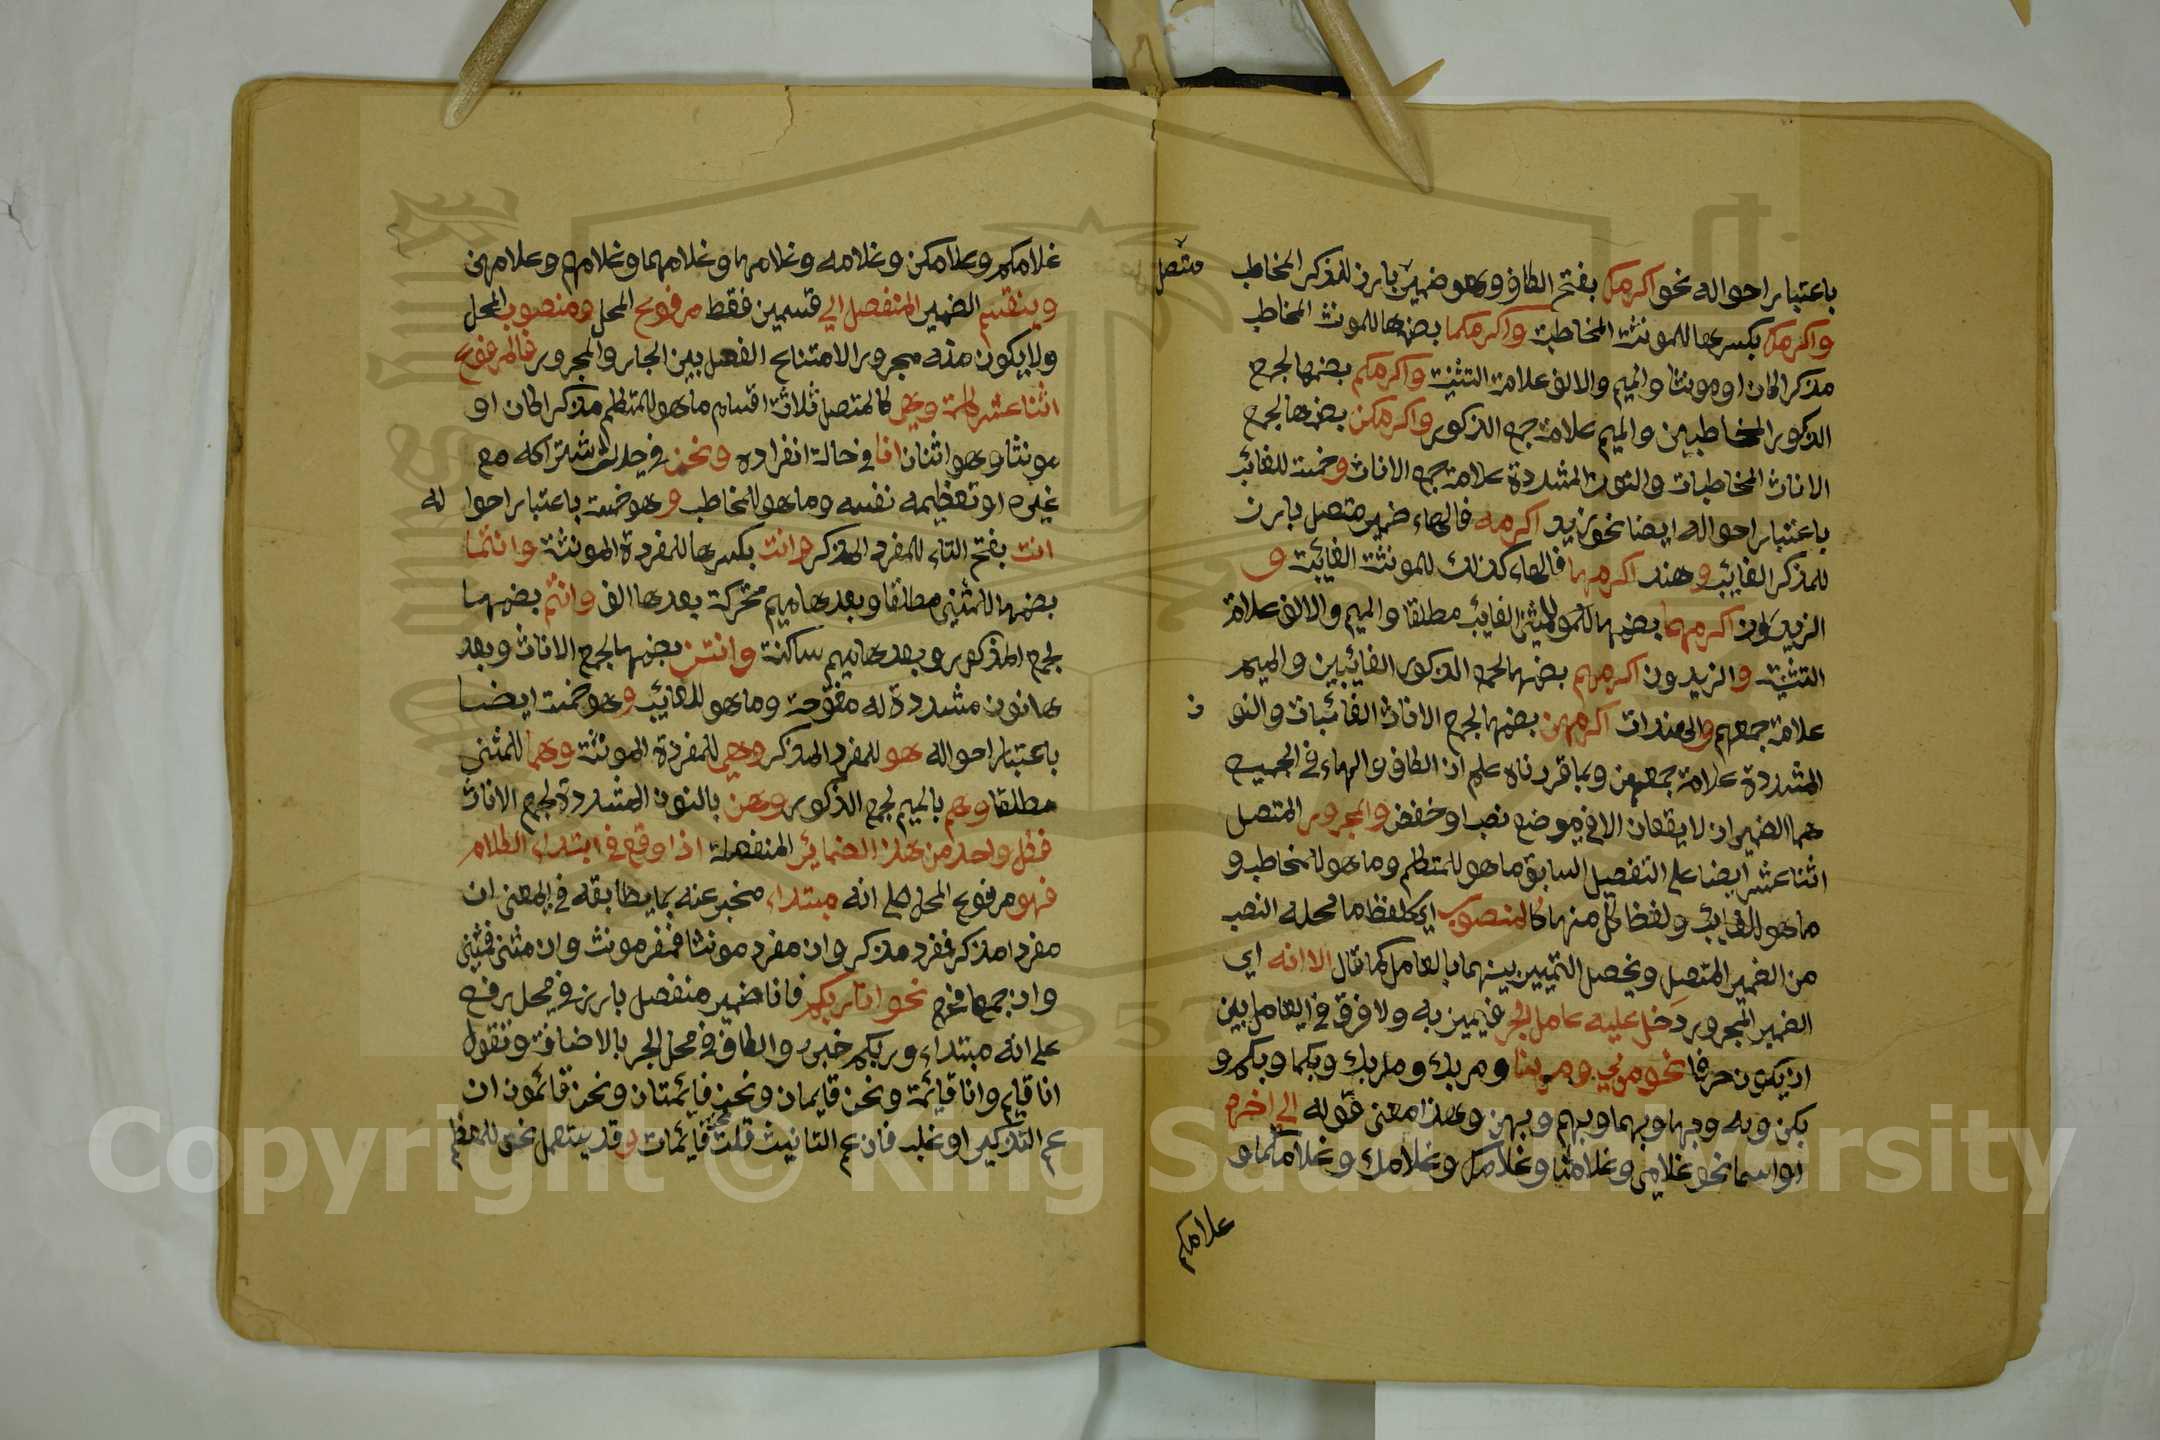 باعتبار احواله نحو اكرمك بفتح الكاف وهو ضمير بارز للمذكر المخاطب
متصل
واكرمك بكسرها للمونثة المخاطبة واكرمكما بضمها للمونث المخاطب
مذكرا كان او مونثا والميم والالف علامة التثنية واكرمكم بضمها لجمع
الذكور المخاطبين والميم علامة جمع الذكور واكرمكن بضمها لجمع
الاناث المخاطبات والنون المشددة علامة جمع الاناث وخمسة للغائب
باعتبار احواله ايضا نحو زيد اكرمه فالهاء ضمير متصل بارز
للمذكر الغايب وهند اكرمها فالهاء كذلك للمونثة الغايبة و
الزيدون اكرمهما بضمها للمثنى الغايب مطلقا والميم والالف علامة
التثنية والزيدون اكرمهم بضمها لجمع الذكور الغايبين والميم
علامة جمعهم والهندات اكرمهن بضمها لجمع الاناث الغائبات والنو
ن
المشددة علامة جمعهن وبما قررناه علم ان الكاف والهاء في الجميع
هما الضميران لا يقعان الا في موضع نصب او خفض والمجرور المتصل
اثنا عشر ايضا على التفصيل السابق ما هو للمتكلم وما هو للمخاطب و
ما هو للغايب ولفظ كل منها كالمنصوب اي كلفظ ما محله النصب
من الضمير المتصل ويحصل التمييز بينهما بالعامل كما قال الا انه اي
الضمير المجرور دخل عليه عامل الجر فيميز به ولا فرق في العامل بين
ان يكون حرفا نحو مر بي ومر بنا ومر بك ومر بك وبكما وبكم و
بكن وبه وبها وبهما وبهم وبهن وهذا معنى قوله الى اخره
او اسما نحو غلامي وغلامنا وغلامك وغلامك وغلامكما و
غلامكم
غلامكم وغلامكن وغلامه وغلامها وغلامهما وغلامهم وغلامهن
وينقسم الضمير المنفصل الي قسمين فقط مرفوع المحل ومنصوب المحل
ولا يكون منه مجرور الامتناع الفصل بين الجار والمجرور فالمرفوع
اثنا عشر كلمة وهي كالمتصل ثلاثة اقسام ما هو للمتكلم مذكرا كان او
مونثا وهو اثنان انا في حالة انفراده ونحن في حالة اشتراكه مع
غيره او تعظيمه نفسه وما هو للمخاطب وهو خمسة باعتبار احوا له
انت بفتح التاء للمفرد المذكر وانت بكسرها للمفردة المونثة وانتما
بضمها للمثنى مطلقا وبعدها ميم متحركة بعدها الف وانتم بضمها
لجمع المذكور وبعدها ميم ساكنة وانتن بضمها لجمع الاناث وبعد
ها نون مشددة له مفتوحة وما هو للغايب وهو خمسة ايضا
باعتبار احواله هو للمفرد المذكر وهي للمفردة المونثة وهما للمثنى
مطلقا وهم بالميم لجمع الذكور وهن بالنون المشددة لجمع الاناث
فكل واحد من هذه الضمائر المنفصلة اذا وقع في ابتداء الكلام
فهو مرفوع المحل على انه مبتداء مخبر عنه بما يطابقه في المعنى ان
مفردا مذكر فمفرد مذكر وان مفرد مونثا فمفرد مونث وان مثنى فمثنى
وان جمعا فجمع نحو انا ربكم فانا ضمير منفصل بارز في محل رفع
على انه مبتداء وربكم خبره والكاف في محل الجر بالاضافة وتقول
انا قايم وانا قايمة ونحن قايمان ونحن قايمتان ونحن قائمون ان
عم التذكير او غلب فان عم التانيث قلت نحن قايمات وقد يستعمل نحن للمعظم